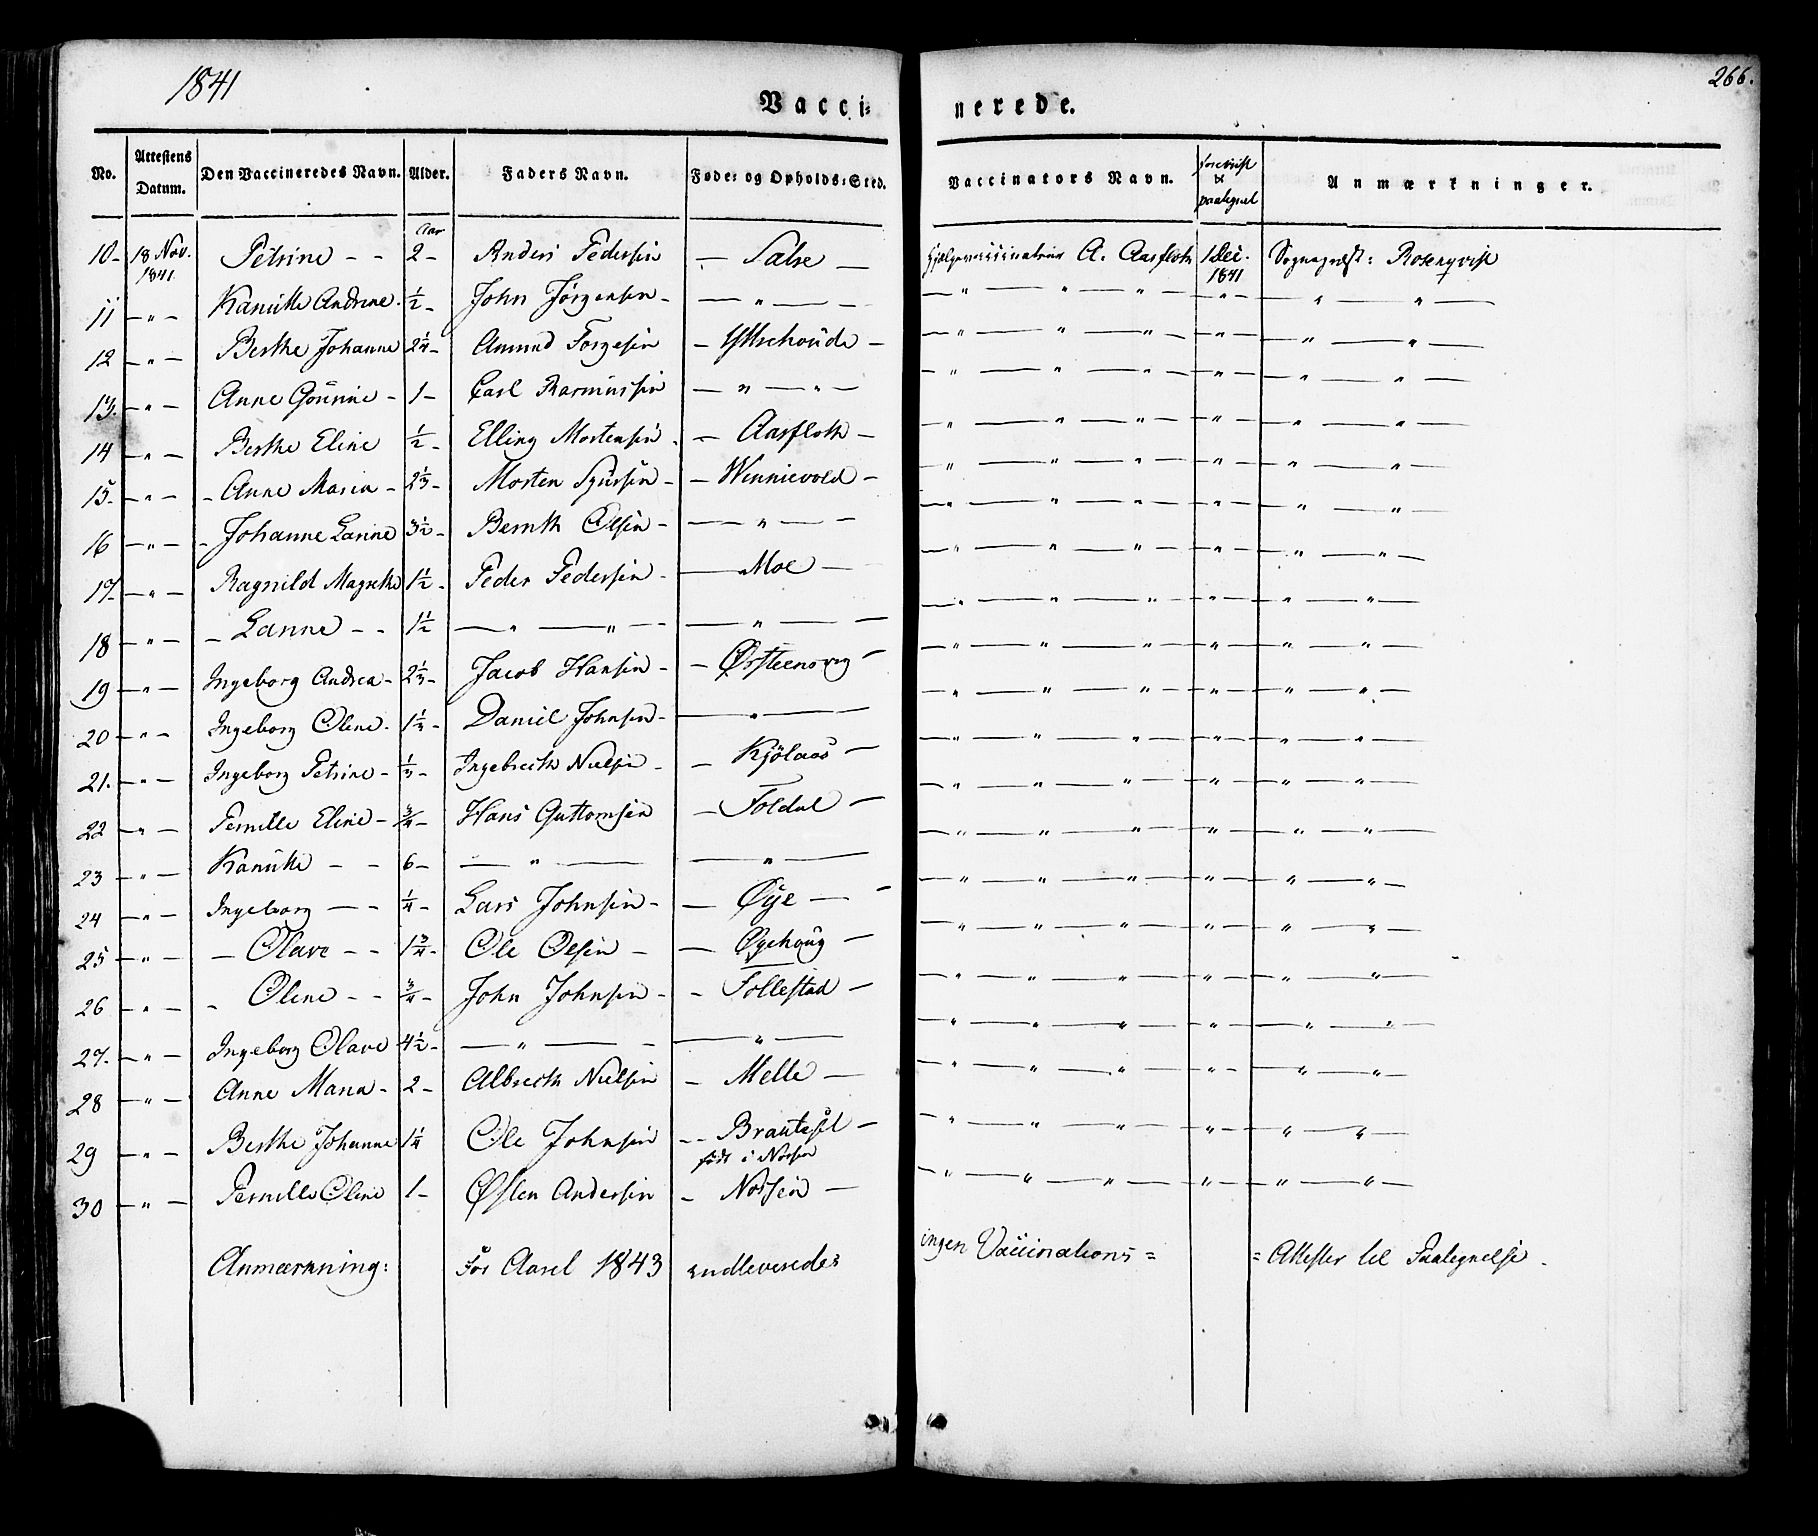 1841
266.
Vacci= nerede.
No. Attestens Datum. Den Vaccineredes Navn. Alder. Faders Navn. Føde= og Opholds=Sted. Vaccinators Navn. foreviist & paategnet Anmærkninger.
Aar
10 - 18 Nov. 1841 Petrine - - 2 - Anders Pedersen - Salse - Hjelpevaccinateur A. Aarfloth 1 Dec. 1841 Sognepræst: Rosenqvist
11 - " - Kanutte Andrine. ½ - John Jörgensen - - " - - " - " - " - - " - - " - " -
12 - " - Berthe Johanne 2¼ - Amund Torgersen - Ytterhoüde - - " - " - " - - " - - " - " -
13. - " - Anne Goürine - 1 - Carl Rasmussen - " - " - - " - " - " - - " - - " - " -
14 - " - Berthe Eline ½ - Elling Mortensen. - Aarfloth - - " - " - " - - " - - " - " -
15. - " - - Anne Maria - 2⅓ - Morten Sjürsen - - Winnievold - - " - " - " - - " - - " - " -
16 - " - - Johanne Larine 3½ - Bernth Olsen - - " - - - " - " - " - - " - - " - " -
17 - " - Ragnild Magrethe 1½ - Peder Pedersen - - Moe - - " - " - " - - " - - " - " -
18 - " - - Lanne - - 1½ - " - " - - - " - - - " - " - " - - " - - " - " -
19 - " - Ingeborg Andrea - 2⅓ - Jacob Hansen - - Ørsteensvig - - " - " - " - - " - - " - " -
20 - " - Ingeborg Oline. 1⅓ - Daniel Johnsen - - " - - " - " - " - - " - - " - " -
21. - " - Ingeborg Petrine - ⅓ - Ingebreth Nielsen - - Kjölaas - - " - " - " - - " - - " - " -
22 - " - Pernille Eline - ¾ - Hans Guttomsen - Foldal - - " - " - " - - " - - " - " -
23 - " - Kanutte - - 6 - - " - - " - - " - " - " - - " - - " - " -
24 - " - Ingeborg - - ¼ - Lars Johnsen - - Øye - - - " - " - " - - " - - " - " -
25 - " - - Olave - - 1¾ - Ole Olsen - - Øyehoüg - - " - " - " - - " - - " - " -
26 - " - - Oline - - ¾ - John Johnsen - - Follestad - - " - " - " - - " - - " - " -
27. - " - Ingeborg Olave 4½ - - " - - - " - - " - " - " - - " - - " - " -
28 - " - Anne Maria - 2 - Albrecth Nielsen - Melle - - " - " - " - - " - - " - " -
29 - " - Berthe Johanne 1¼ Ole Johnsen - - Brauteset - - " - " - " - - " - - " - " -
födt i Norsen
30 - " - Pernille Oline 1 - Østen Andersen - Norsen - - " - " - " - - " - - " - " -
Anmærkning: For Aaret 1843 indleveredes ingen Vaccinations= =Attester til Paategnelse.